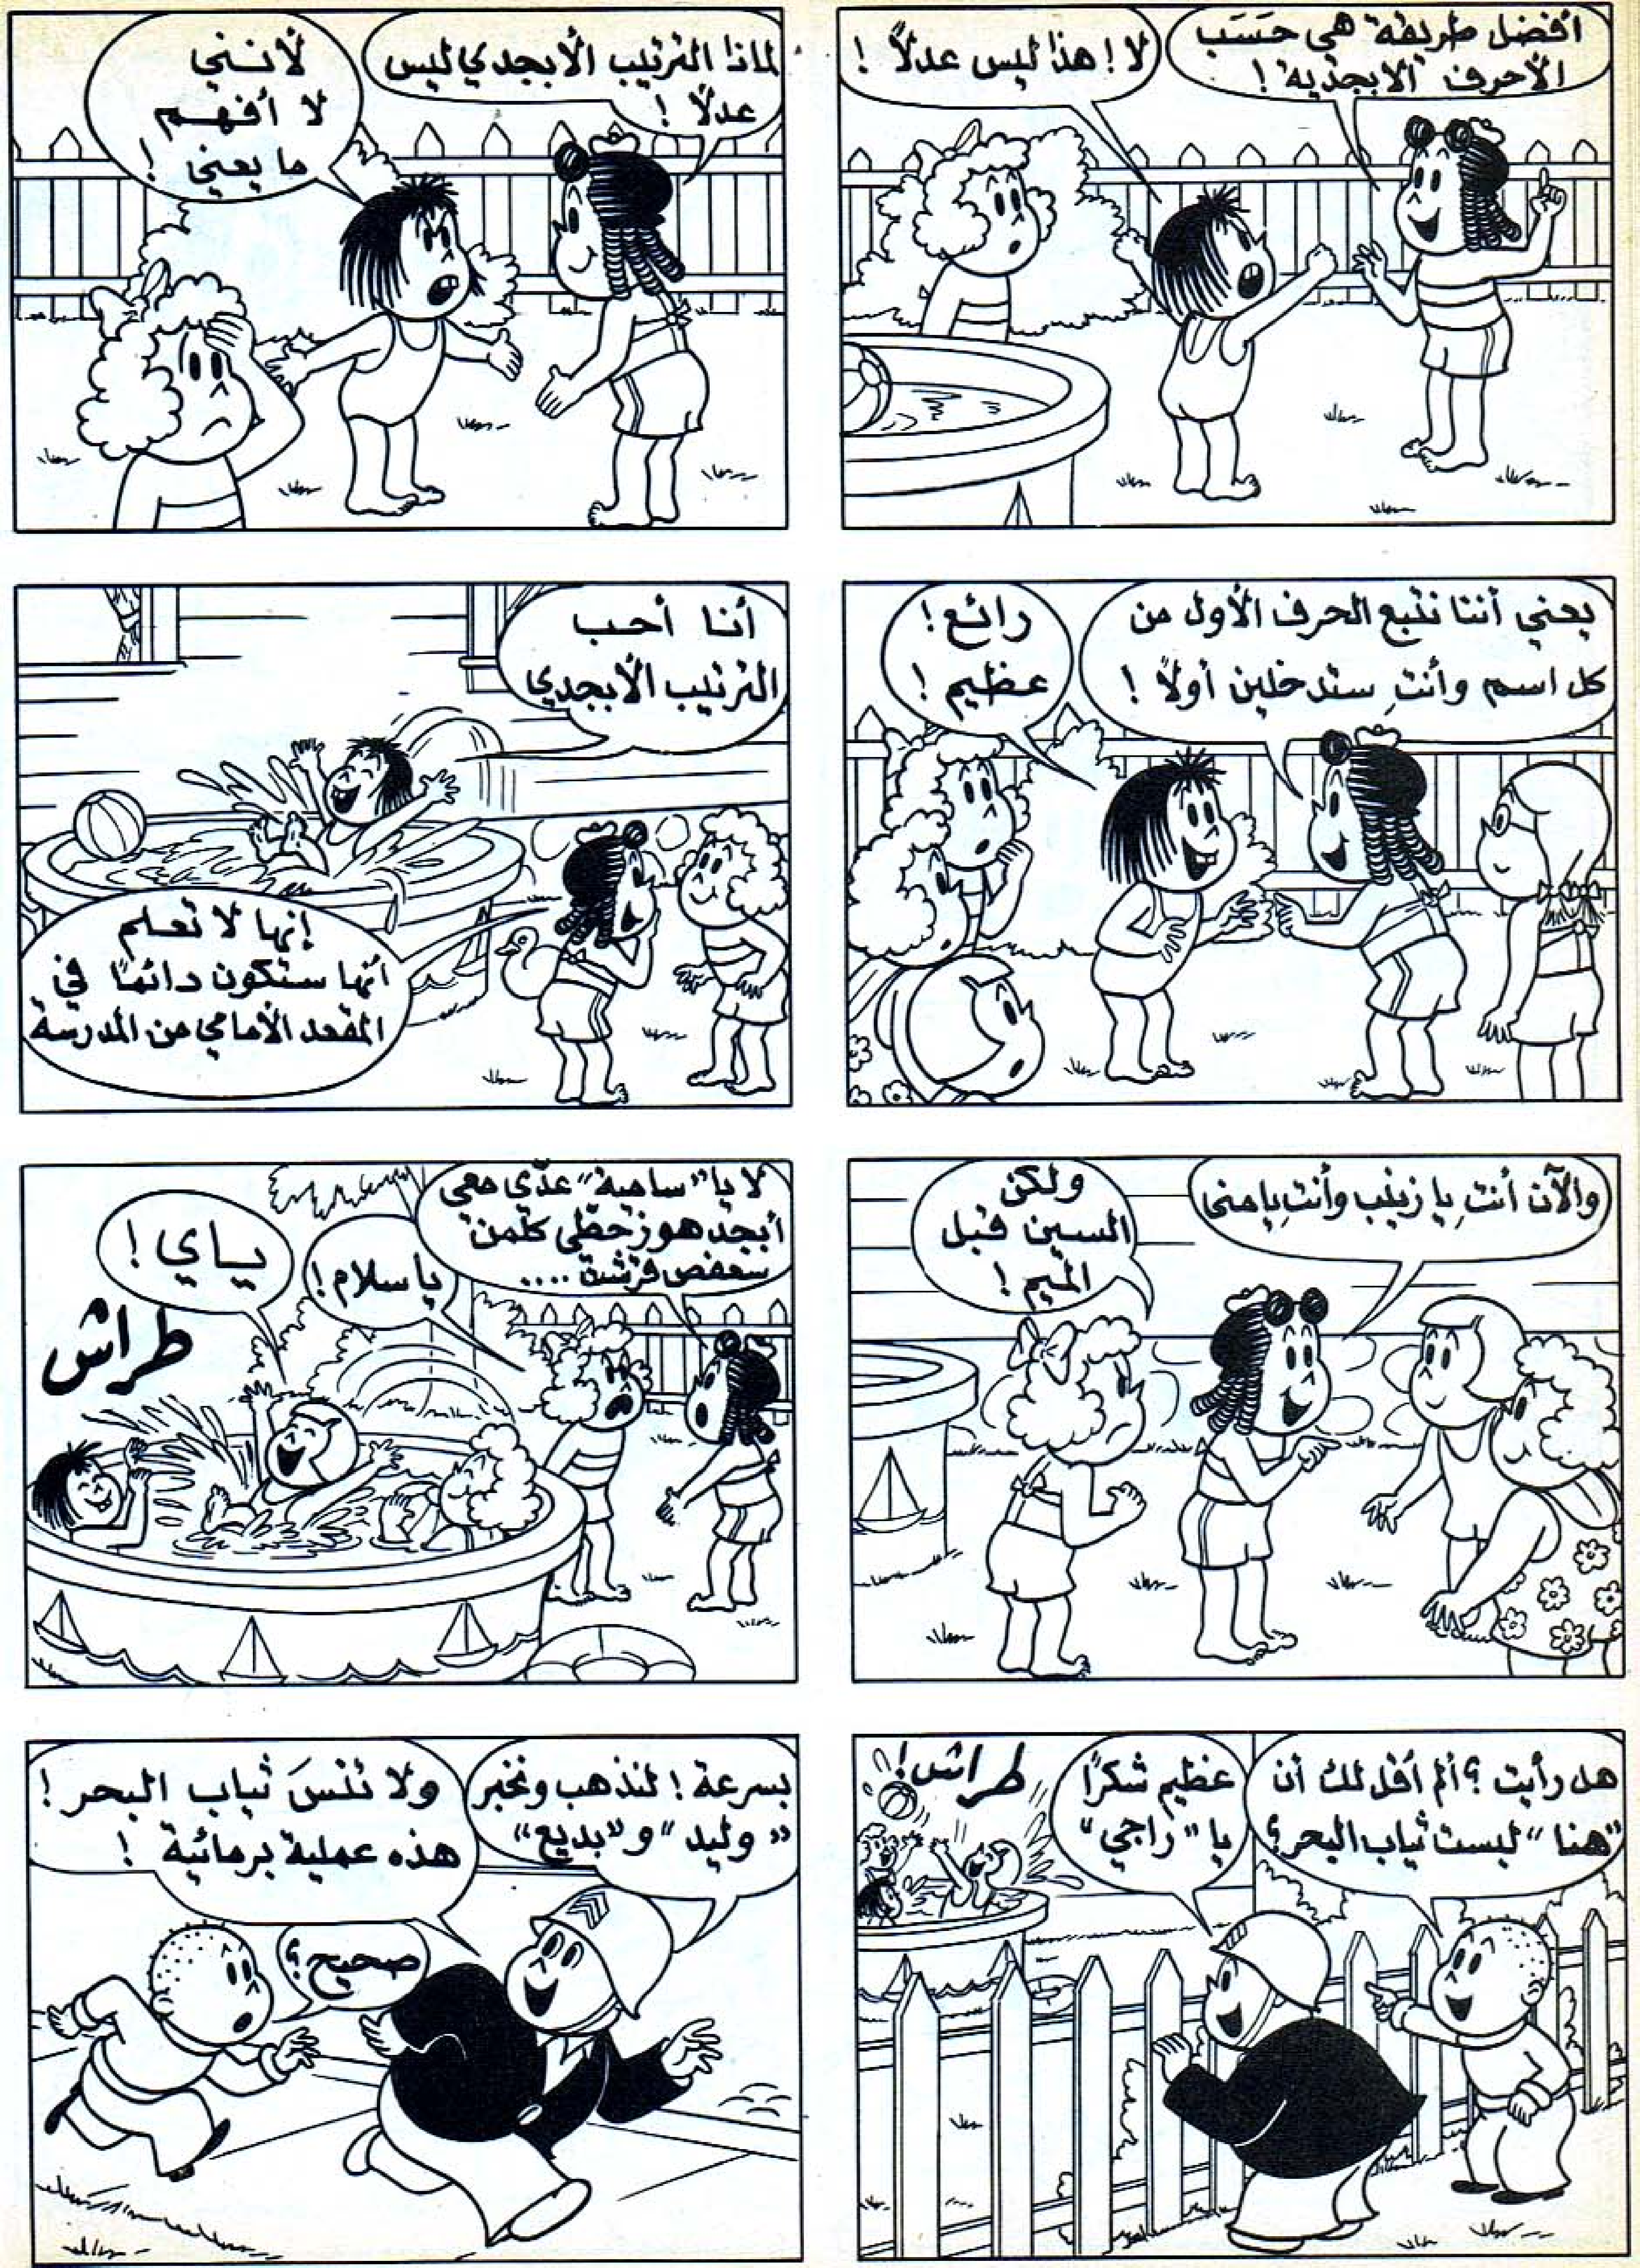 أفضل طريقة هي حَسَب
الأحرف الأبجدية !
لا ! هذا ليس عدلاً !
لماذا الترتيب الأبجدي ليس
عدلاً !
لأنني
لا أفهم
ما يعني !
يعني أننا نتبع الحرف الأول من
كل اسم وأنتِ ستدخلين أولاً !
رائع !
عظيم !
أنا أحب
الترتيب الأبجدي
إنها لا تعلم
أنها ستكون دائماً في
المقعد الأمامي من المدرسة
والآن أنتِ يا زينب وأنتِ يا منى
ولكن
السين قبل
الميم !
لا يا "سامية" عدّي معي
أبجد هوز حطّي كلمن
سعفص قرشت ....
يا سلام !
ياي !
طراش
هل رأيت ؟ ألم أقل لك أن
"هنا" لبست ثياب البحر ؟
عظيم شكرًا
يا "راجي"
طراش !
بسرعة ! لنذهب ونخبر
"وليد" و"بديع"
ولا ننسَ ثياب البحر !
هذه عملية برمائية !
صحيح ؟